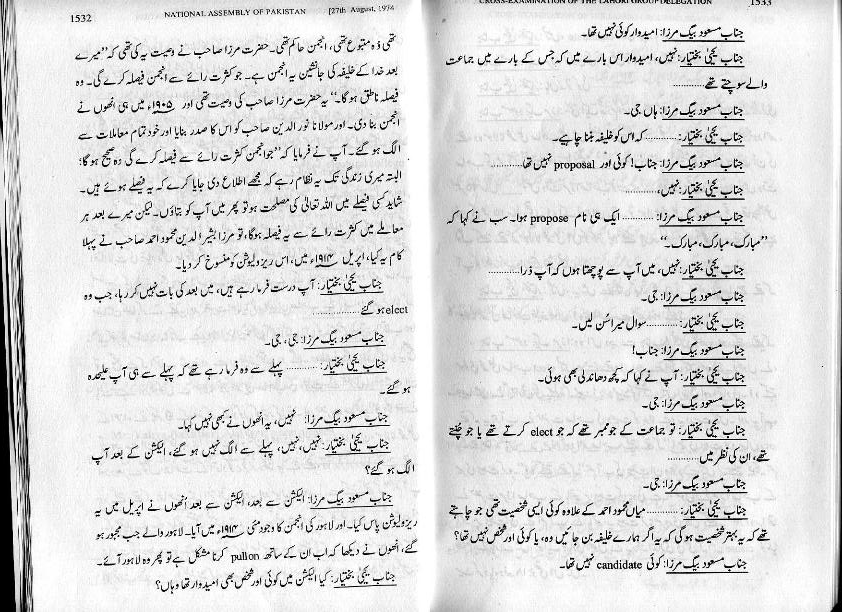 1532
NATIONAL ASSEMBLY OF PAKISTAN
[27th August, 1974
تھی وہ متبوع تھی، انجمن حاکم تھی۔ حضرت مرزا صاحب نے وصیت یہ کی تھی کہ ”میرے
بعد خدا کے خلیفہ کی جانشین یہ انجمن ہے۔ جو کثرت رائے سے انجمن فیصلہ کرے گی۔ وہ
فیصلہ ناطق ہوگا۔“ یہ حضرت مرزا صاحب کی وصیت تھی اور ۱۹۰۵ء میں ہی انھوں نے
انجمن بنا دی۔ اور مولانا نور الدین صاحب کو اس کا صدر بنایا اور خود تمام معاملات سے
الگ ہو گئے۔ آپ نے فرمایا کہ ”جو انجمن کثرت رائے سے فیصلہ کرے گی وہ صحیح ہوگا؛
البتہ میری زندگی تک یہ نظام رہے کہ مجھے اطلاع دی جایا کرے کہ یہ فیصلے ہوئے ہیں۔
شاید کسی فیصلے میں اللہ تعالیٰ کی مصلحت ہو تو پھر میں آپ کو بتاؤں۔ لیکن میرے بعد ہر
معاملے میں کثرت رائے سے یہ فیصلہ ہوگا، تو مرزا بشیر الدین محمود احمد صاحب نے پہلا
کام یہ کیا، اپریل ۱۹۱۴ء میں، اس ریزولیوشن کو منسوخ کر دیا۔
جناب یحییٰ بختیار: آپ درست فرما رہے ہیں، میں بعد کی بات نہیں کر رہا، جب وہ
elect ہو گئے............
جناب مسعود بیگ مرزا: جی، جی۔
جناب یحییٰ بختیار: ............ پہلے سے وہ فرما رہے تھے کہ پہلے سے ہی آپ علیحدہ
ہو گئے۔
جناب مسعود بیگ مرزا: نہیں، یہ انھوں نے بھی نہیں کہا۔
جناب یحییٰ بختیار: نہیں، نہیں، پہلے سے الگ نہیں ہو گئے، الیکشن کے بعد آپ
الگ ہو گئے؟
جناب مسعود بیگ مرزا: الیکشن سے بعد، الیکشن سے بعد انھوں نے اپریل میں یہ
ریزولیوشن پاس کیا۔ اور لاہور کی انجمن کا وجود مئی ۱۹۱۴ء میں آیا۔ لاہور والے جب مجبور ہو
گئے، انھوں نے دیکھا کہ اب ان کے ساتھ pull on کرنا مشکل ہے تو پھر وہ لاہور آئے۔
جناب یحییٰ بختیار: کیا الیکشن میں کوئی اور شخص بھی امیدوار تھا وہاں؟
CROSS-EXAMINATION OF THE LAHORI GROUP DELEGATION
1533
جناب مسعود بیگ مرزا: امیدوار کوئی نہیں تھا۔
جناب یحییٰ بختیار: نہیں، امیدوار اس بارے میں کہ جس کے بارے میں جماعت
والے سوچتے تھے............
جناب مسعود بیگ مرزا: ہاں جی۔
جناب یحییٰ بختیار: ............ کہ اس کو خلیفہ بننا چاہیے۔
جناب مسعود بیگ مرزا: جناب! کوئی اور proposal نہیں تھا............
جناب یحییٰ بختیار: نہیں،
جناب مسعود بیگ مرزا: ............ ایک ہی نام propose ہوا۔ سب نے کہا کہ
”مبارک، مبارک، مبارک۔“
جناب یحییٰ بختیار: نہیں، میں آپ سے پوچھتا ہوں کہ آپ ذرا............
جناب مسعود بیگ مرزا: جی۔
جناب یحییٰ بختیار: ............ سوال میرا سُن لیں۔
جناب مسعود بیگ مرزا: جناب!
جناب یحییٰ بختیار: آپ نے کہا کہ کچھ دھاندلی بھی ہوئی۔
جناب مسعود بیگ مرزا: جی۔
جناب یحییٰ بختیار: تو جماعت کے جو ممبر تھے کہ جو elect کرتے تھے یا جو چُنتے
تھے، ان کی نظر میں............
جناب مسعود بیگ مرزا: جی۔
جناب یحییٰ بختیار: ............ میاں محمود احمد کے علاوہ کوئی ایسی شخصیت تھی جو چاہتے
تھے کہ یہ بہتر شخصیت ہوگی کہ یہ اگر ہمارے خلیفہ بن جائیں وہ، یا کوئی اور شخص نہیں تھا؟
جناب مسعود بیگ مرزا: کوئی candidate نہیں تھا۔